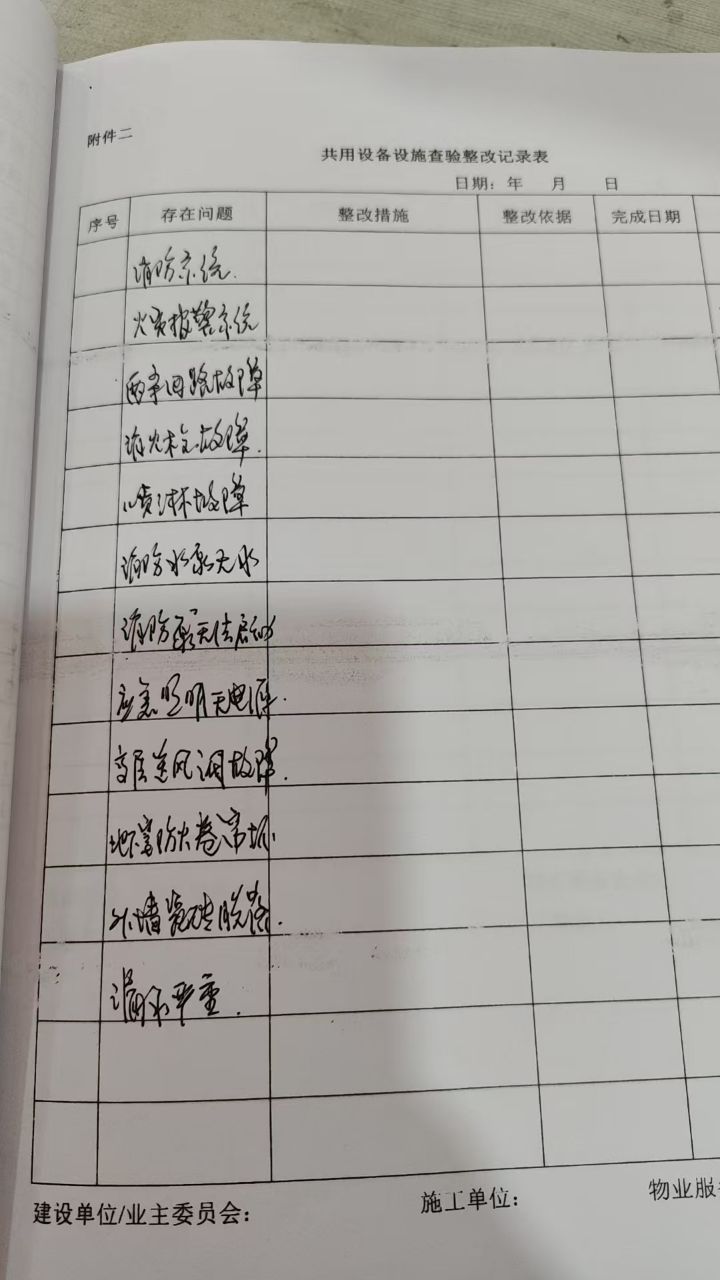 附件二
共用设备设施查验整改记录表
日期： 年 月 日
序号 存在问题 整改措施 整改依据 完成日期
消防系统.
火灾报警系统
两条回路故障
消火栓故障.
喷淋故障
消防水泵无水
消防泵无法启动
应急照明无电源.
高层送风阀故障.
地下室防火卷帘坏.
外墙瓷砖脱落.
漏水严重.
建设单位/业主委员会： 施工单位： 物业服